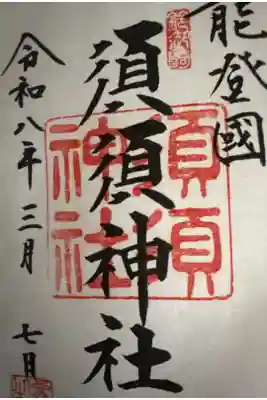 能登國
須須神社
須須神社
令和八年三月
七月